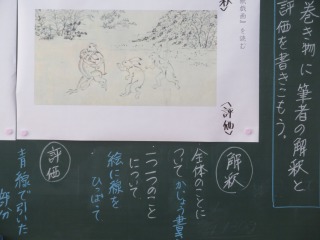 巻き物に筆者の解釈と
評価を書きこもう。
戯画』を読む
(評価)
解釈
全体のことに
ついてかじょう書き
一つ一つのこと
について
絵に線を
ひっぱって
評価
青線で引いた